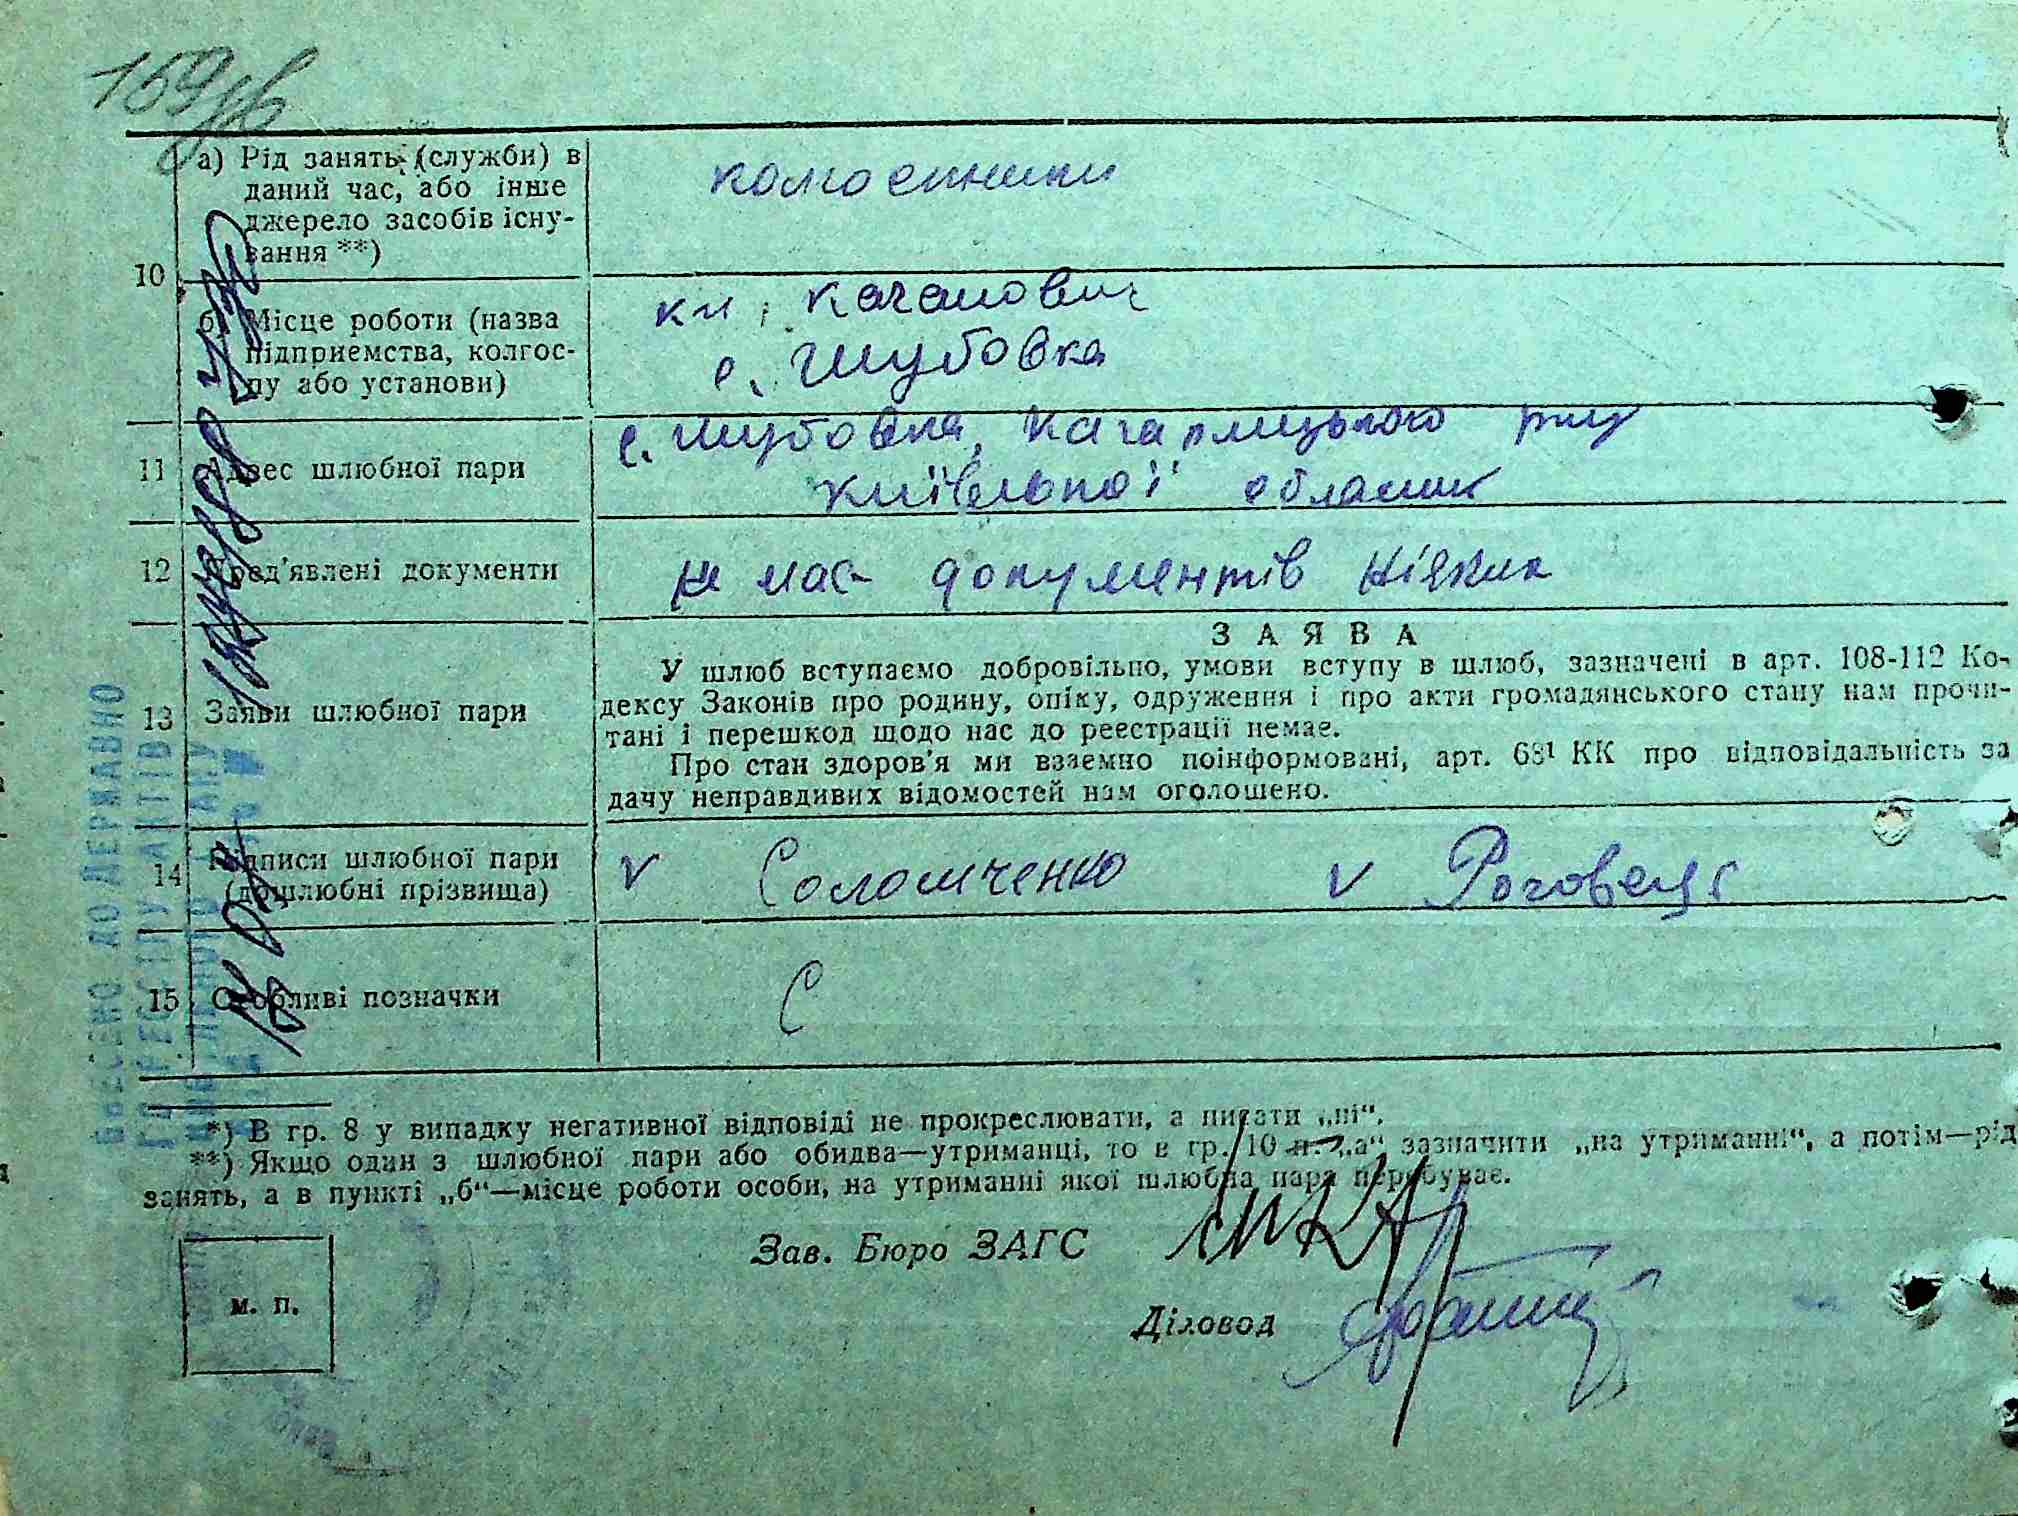 а) Рід занять (служби) в
даний час, або інше
джерело засобів існу-
вання **)
колгоспники
10
б) Місце роботи (назва
підприемства, колгос-
пу або установи)
с. Шубовка
11 Адрес шлюбної пари
с. Шубовка, Кагарлицького р-ну
Київської области
12 Пред'явлені документи
не має документів ніяких
13 Заяви шлюбної пари
ЗАЯВА
У шлюб вступаємо добровільно, умови вступу в шлюб, зазначені в арт. 108-112 Ко-
дексу Законів про родину, опіку, одруження і про акти громадянського стану нам прочи-
тані і перешкод щодо нас до реестрації немае.
Про стан здоров'я ми взаемно поінформовані, арт. 68¹ КК про відповідальність за
дачу неправдивих відомостей нам оголошено.
14 Підписи шлюбної пари
(дошлюбні прізвища)
v Соломченко v Роговець
15 Особливі позначки
С
*) В гр. 8 у випадку негативної відповіді не прокреслювати, а писати „ні“.
**) Якщо один з шлюбної пари або обидва—утриманці, то в гр. 10 п. „а“ зазначити „на утриманні“, а потім—рід
занять, а в пункті „б“—місце роботи особи, на утриманні якої шлюбна пара перебувае.
Зав. Бюро ЗАГС
м. п.
Діловод
ВНЕСЕНО ДО ДЕРЖАВНО
ГО РЕЕСТРУ АКТІВ